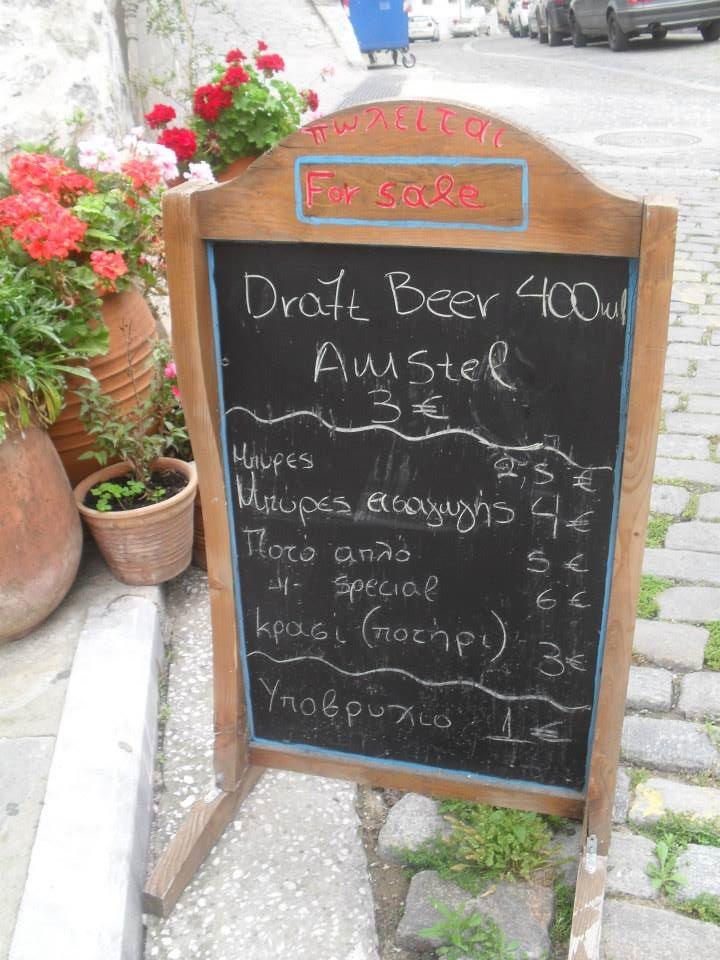 πωλείται
For sale
Draft Beer 400ml
Amstel
3 €
Μπύρες 2,5 €
Μπύρες εισαγωγής 4 €
Ποτό απλό 5 €
-//- special 6 €
κρασί (ποτήρι) 3 €
Υποβρυχιο 1 €